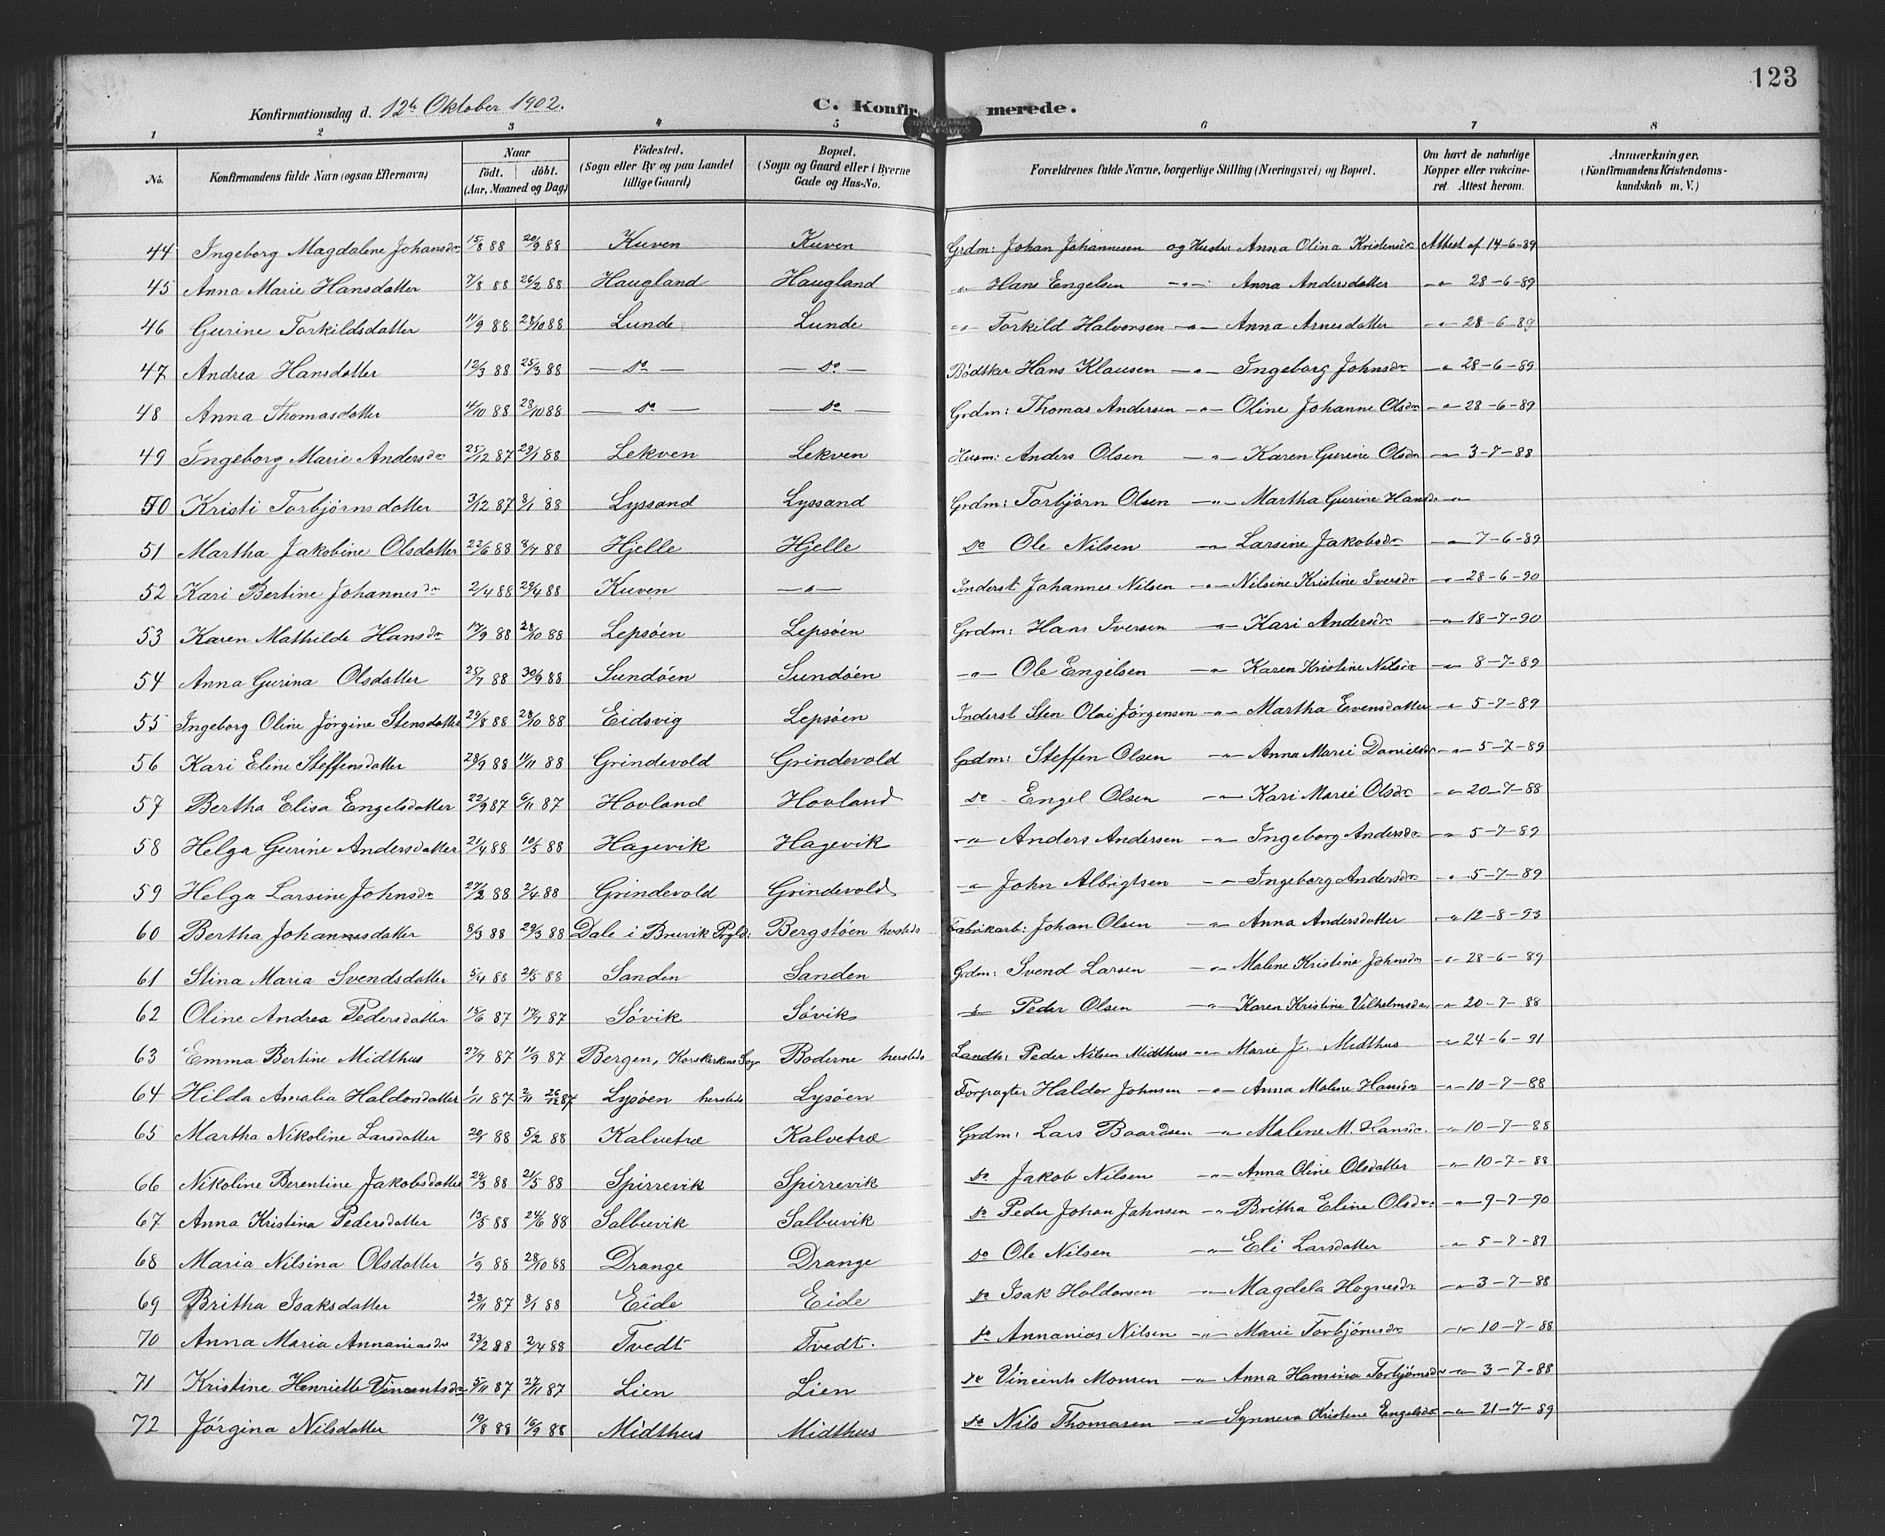 123
Konfirmationsdag d. 12te Oktober 1902. C. Konfirmerede.
1 2 3 4 5 6 7 8
No. Konfirmandens fulde Navn (ogsaa Efternavn) Naar födt. döbt. (Aar, Maaned og Dag) Födested. (Sogn eller By og paa Landet tillige Gaard) Bopæl. (Sogn og Gaard eller i Byerne Gade og Hus-No. Forældrenes fulde Navne, borgerlige Stilling (Næringsvei) og Bopæl. Om havt de naturlige Kopper eller vakcineret. Attest herom. Anmærkninger. (Konfirmandens Kristendomskundskab m. V.)
44 Ingeborg Magdalene Johansdr 15/8 88 20/9 88 Kuven Kuven Grdm: Johan Johannesen og Hustr: Anna Olina Kristensdr Attest af 14-6-89
45 Anna Marie Hansdatter 7/8 88 26/2 88 Haugland Haugland -"- Hans Engelsen -"- Anna Andersdatter -"- 28-6-89
46 Gurine Torkildsdatter 11/9 88 28/10 88 Lunde Lunde -"- Torkild Halvorsen -"- Anna Arnesdatter -"- 28-6-89
47 Andrea Hansdatter 12/3 88 25/3 88 — do — — do — Bødtker Hans Klausen -"- Ingeborg Johnsdr -"- 28-6-89
48 Anna Thomasdatter 4/10 88 28/10 88 — do — — do — Grdm: Thomas Andersen -"- Oline Johanne Olsdr -"- 28-6-89
49 Ingeborg Marie Andersdr 25/12 87 29/1 88 Lekven Lekven Husm: Anders Olsen -"- Karen Gurine Olsdr -"- 3-7-88
50 Kristi Torbjørnsdatter 3/12 87 8/1 88 Lyssand Lyssand Grdm: Torbjørn Olsen -"- Martha Gurine Hansdr -"-
51 Martha Jakobine Olsdatter 22/6 88 8/7 88 Hjelle Hjelle do Ole Nilsen -"- Larsine Jakobsdr -"- 7-6-89
52 Kari Bertine Johannesdr 2/4 88 29/4 88 Kuven -"- Inderst Johannes Nilsen -"- Nilsine Kristine Iversdr -"- 28-6-90
53 Karen Mathilde Hansdr 17/9 88 28/10 88 Lepsøen Lepsøen Grdm: Hans Iversen -"- Kari Andersdr -"- 18-7-90
54 Anna Gurina Olsdatter 25/7 88 30/9 88 Sundøen Sundøen -"- Ole Engelsen -"- Karen Kristine Nilsdr -"- 8-7-89
55 Ingeborg Oline Jørgine Stensdatter 29/8 88 28/10 88 Eidsvig Lepsøen Inderst Sten Olai Jørgensen -"- Martha Evensdatter -"- 5-7-89
56 Kari Eline Steffensdatter 28/9 88 11/11 88 Grindevold Grindevold Grdm: Steffen Olsen -"- Anna Marie Danielsdr -"- 5-7-89
57 Bertha Elisa Engelsdatter 22/9 87 6/11 87 Hovland Hovland do Engel Olsen -"- Kari Marie Olsdr -"- 20-7-88
58 Helga Gurine Andersdatter 21/4 88 10/5 88 Hagevik Hagevik -"- Anders Andersen -"- Ingeborg Andersdr -"- 5-7-89
59 Helga Larsine Johnsdr 27/2 88 2/4 88 Grindevold Grindevold -"- John Albrigtsen -"- Ingeborg Andersdr -"- 5-7-89
60 Bertha Johannesdatter 8/3 88 29/3 88 Dale i Bruvik Prgld: Bergstøen hersteds Fabrikarb: Johan Olsen -"- Anna Andersdatter -"- 12-8-93
61 Stina Maria Svendsdatter 5/4 88 21/5 88 Sanden Sanden Grdm: Svend Larsen -"- Malene Kristine Johnsdr -"- 28-6-89
62 Oline Andrea Pedersdatter 15/6 87 17/7 87 Søvik Søvik -"- Peder Olsen -"- Karen Kristine Vilhelmsdr -"- 20-7-88
63 Emma Bertine Midthus 27/7 87 11/9 87 Bergen, Korskirkens Sogn Boderne hersteds Landh: Peder Nilsen Midthus -"- Marie J. Midthus -"- 24-6-91
64 Hilda Amalia Haldorsdatter 1/11 87 2/11 26/12 87 Lysøen hersteds Lysøen Forpagter Haldor Johnsen -"- Anna Malene Hansdr -"- 10-7-88
65 Martha Nikoline Larsdatter 20/1 88 5/2 88 Kalvetræ Kalvetræ Grdm: Lars Baardsen -"- Malene M. Hansdr. -"- 10-7-88
66 Nikoline Berentine Jakobsdatter 29/3 88 21/5 88 Spirrevik Spirrevik do Jakob Nilsen -"- Anna Oline Olsdatter -"- 10-7-88
67 Anna Kristina Pedersdatter 13/5 88 24/6 88 Salbuvik Salbuvik do Peder Johan Jahnsen -"- Britha Eline Olsdr: -"- 9-7-90
68 Maria Nilsina Olsdatter 1/9 88 28/10 88 Drange Drange do Ole Nilsen -"- Eli Larsdatter -"- 5-7-89
69 Britha Isaksdatter 23/11 87 8/1 88 Eide Eide do Isak Haldorsen -"- Magdela Hognesdr -"- 3-7-88
70 Anna Maria Annaniasdr 23/2 88 2/4 88 Tvedt Tvedt. do Annanias Nilsen -"- Marie Torbjørnsdr -"- 10-7-88
71 Kristine Henriette Vincentsdr 5/11 87 27/11 87 Lien Lien do Vincents Monsen -"- Anna Hansina Torbjørnsdr -"- 3-7-88
72 Jørgina Nilsdatter 19/8 88 16/9 88 Midthus Midthus do Nils Thomasen -"- Synneva Kristine Engelsdr -"- 21-7-89